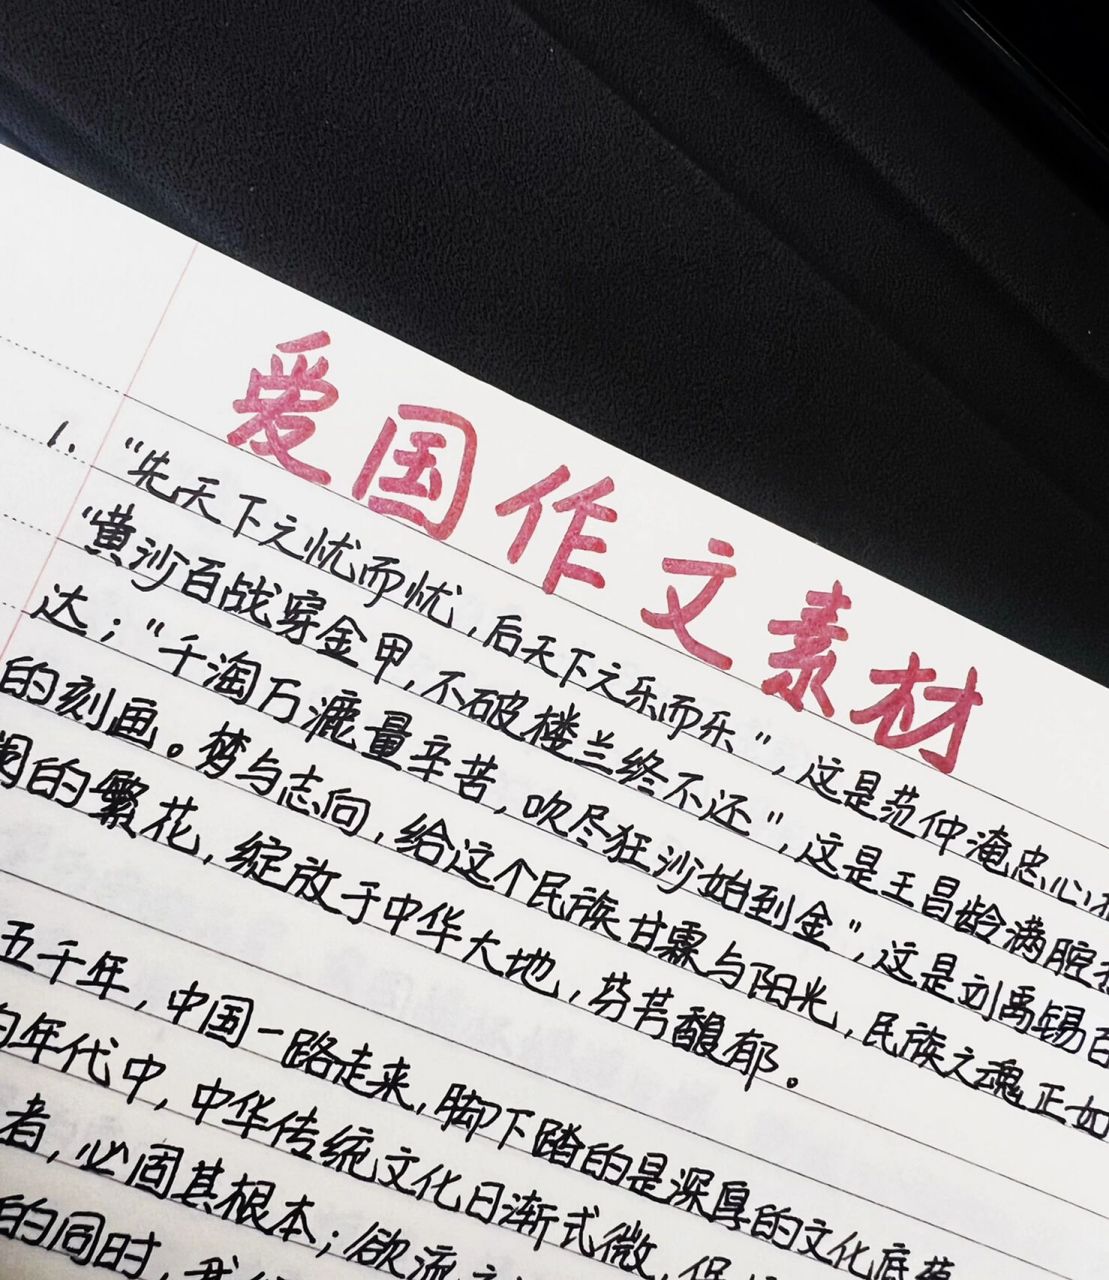 爱国作文素材
1. “先天下之忧而忧,后天下之乐而乐”,这是范仲淹忠心
“黄沙百战穿金甲,不破楼兰终不还”,这是王昌龄满腔
达;“千淘万漉量辛苦,吹尽狂沙始到金”,这是刘禹锡百
的刻画。梦与志向,给这个民族甘霖与阳光,民族之魂正如
的繁花,绽放于中华大地,芬芳馥郁。
五千年,中国一路走来,脚下踏的是深厚的文化底蕴
年代中,中华传统文化日渐式微,保
者,必固其根本;欲流
的同时,我们